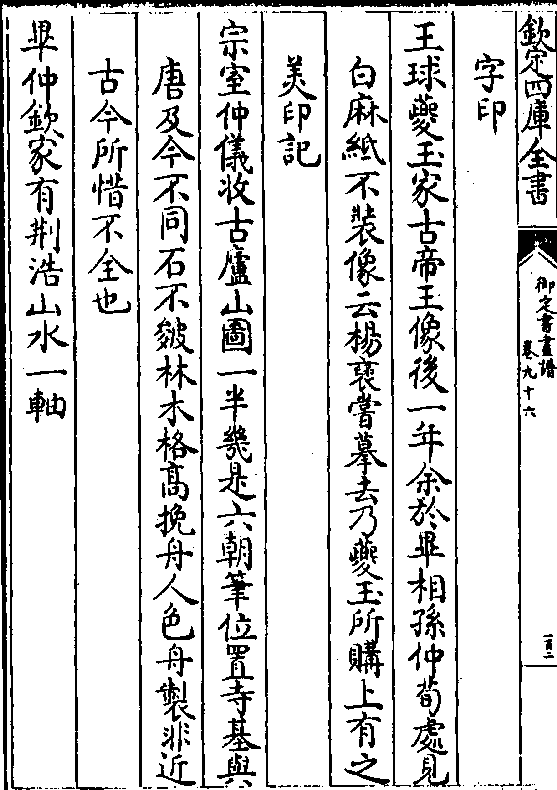 欽定四庫全書
御定書畫譜
卷九十六
百二
字印
王球夔玉家古帝王像後一年余於畢相孫仲荀處見
白麻紙不裝像云楊襃嘗摹去乃夔玉所購上有之
美印記
宗室仲儀收古廬山圖一半幾是六朝筆位置寺基與
唐及今不同石不皴林木格髙挽舟人色舟製非近
古今所惜不全也
畢仲欽家有荆浩山水一軸